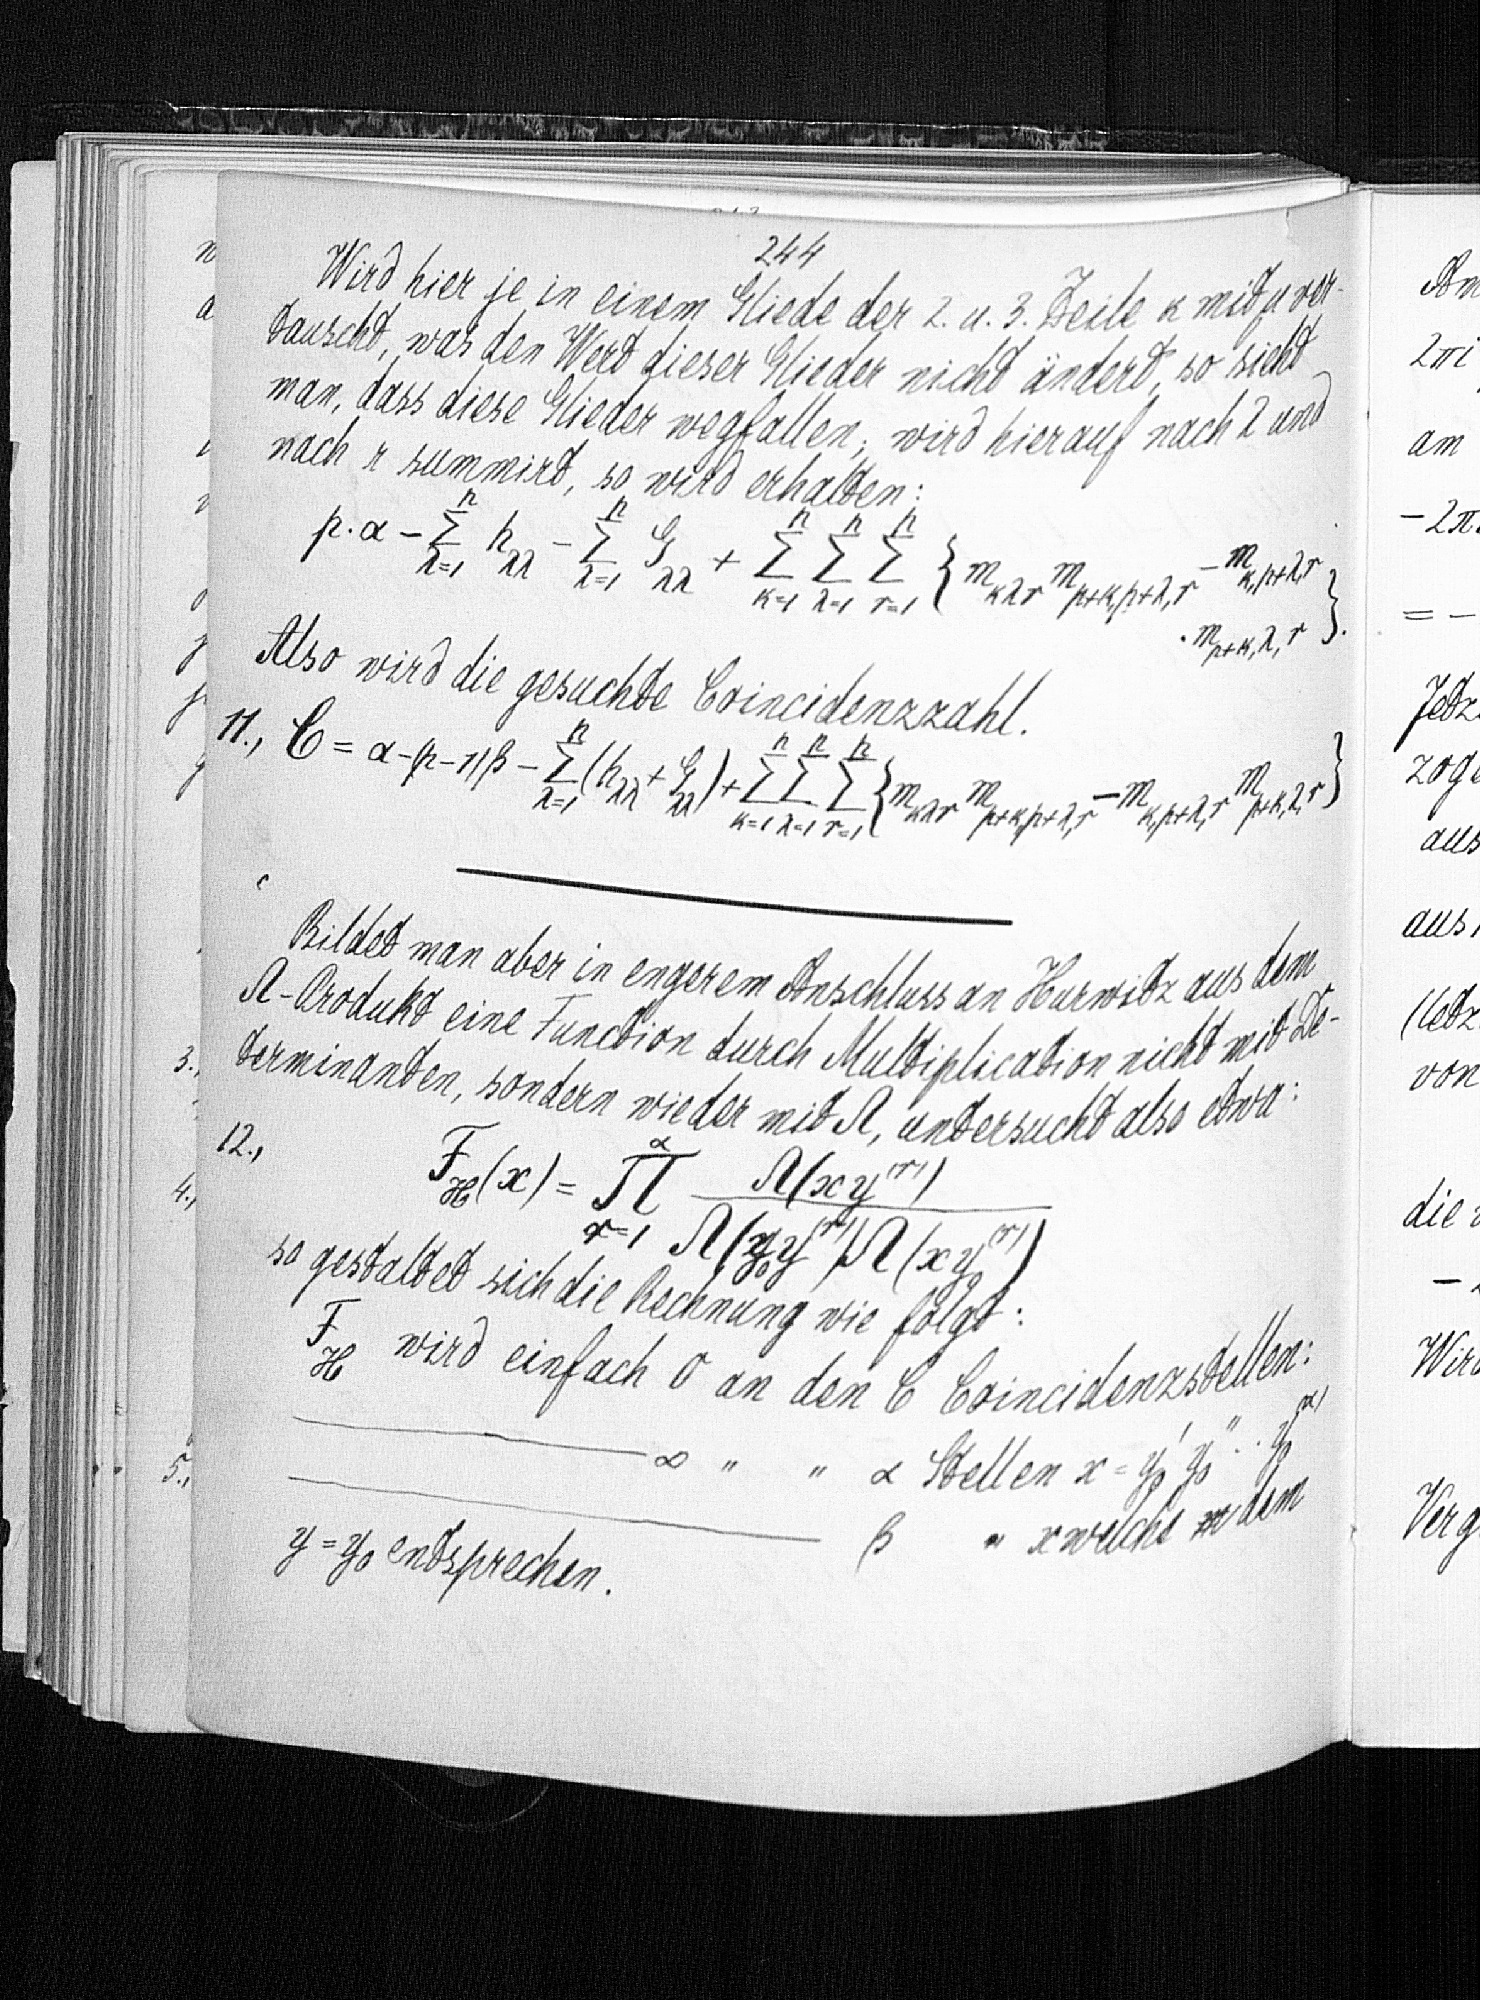 244
Wird hier je in einem Gliede der 2. u. 3. Zeile κ mit μ ver-
tauscht, was den Wert dieser Glieder nicht ändert, so sieht
man, dass diese Glieder wegfallen; wird hierauf nach λ und
nach r summirt, so wird erhalten:
p·α - Σ_{λ=1}^{p} h_{λλ} - Σ_{λ=1}^{p} G_{λλ} + Σ_{κ=1}^{p} Σ_{λ=1}^{p} Σ_{r=1}^{p} { m_{κλr} m_{p+κ,p+λ,r} - m_{κ,p+λ,r}
· m_{p+κ,λ,r} }.
Also wird die gesuchte Coincidenzzahl.
11., C = α-(p-1)β - Σ_{λ=1}^{p} (h_{λλ} + G_{λλ}) + Σ_{κ=1}^{p} Σ_{λ=1}^{p} Σ_{r=1}^{p} { m_{κλr} m_{p+κ,p+λ,r} - m_{κ,p+λ,r} m_{p+κ,λ,r} }
Bildet man aber in engerem Anschluss an Hurwitz aus dem
Ω-Produkt eine Function durch Multiplication nicht mit De-
terminanten, sondern wieder mit Ω, untersucht also etwa:
12., F_H(x) = Π_{r=1}^{α} Ω(x y^{(r)}) / Ω(y_0 y^{(r)}) Ω(x y_0^{(r)})
so gestaltet sich die Rechnung wie folgt:
F_H wird einfach 0 an den C Coincidenzstellen:
——— ∞ " " α Stellen x = y_0' y_0'' .. y_0^{(α)}
——— β " x welche dem
y = y_0 entsprechen.